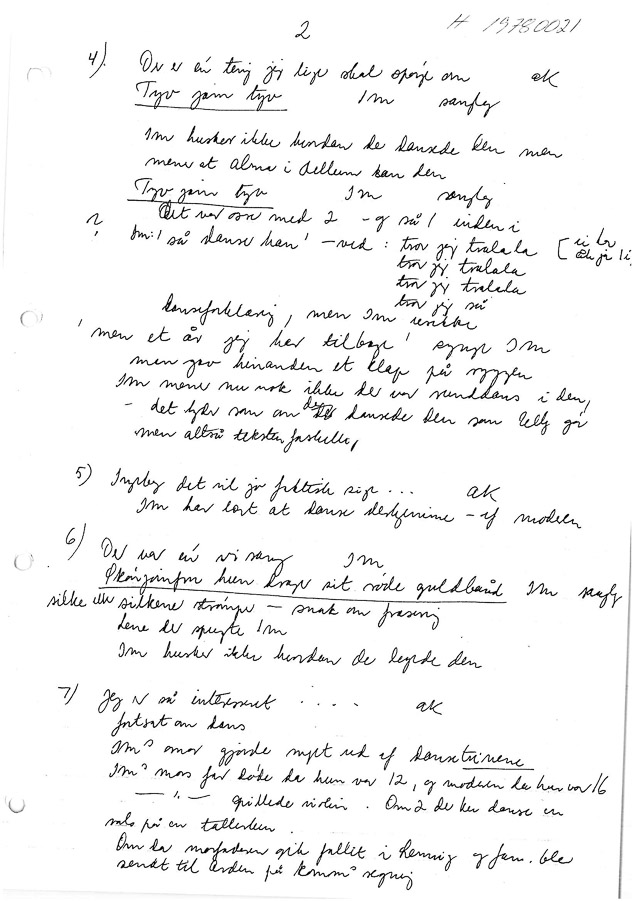 2
H 19780021
4). Der er én ting jeg lige skal spørge om AK
Tyv jain tyv Im sanfg
Im husker ikke hvordan de dansede den men
mener at Alma i kan den
Tyv jain tyv Im sanfg
Det var osse med 2 - og så 1 inden i
? om: 1 så danser han' - ved: trov jeg tralala
trov jeg tralala
trov jeg tralala
trov jeg så
danseforklaring, men Im
'men et år jeg har tilbage' synge Im
man gav hinanden et klap på ryggen
Im mener nu nok ikke der var runddans i den,
- det lyder som om de dansede den som Lelly gør
men altså teksten forskellig,
5) Ingeborg det vil jo faktisk sige ... AK
Im har lært at danse derhjemme - af moderen
6) Der var én vi sang Im
Skönjomfru hun drage sit røde guldbånd Im sanfg
silke eller silkene strømpe - snak om frasering
Lene der spurgte Im
Im husker ikke hvordan de legede den
7) Jeg er så interesseret . . . . AK
fortsat om dans
Im's mor gjorde meget ud af dansetrinene
Im's mors far døde da hun var 12, og moderen da hun var 16
— " — spillede violin. Om 2 der kan danse en
vals på en tallerken.
Om da morfaderen gik fallit i Rønning og fam. ble
sendt til Aarden på komm's regning